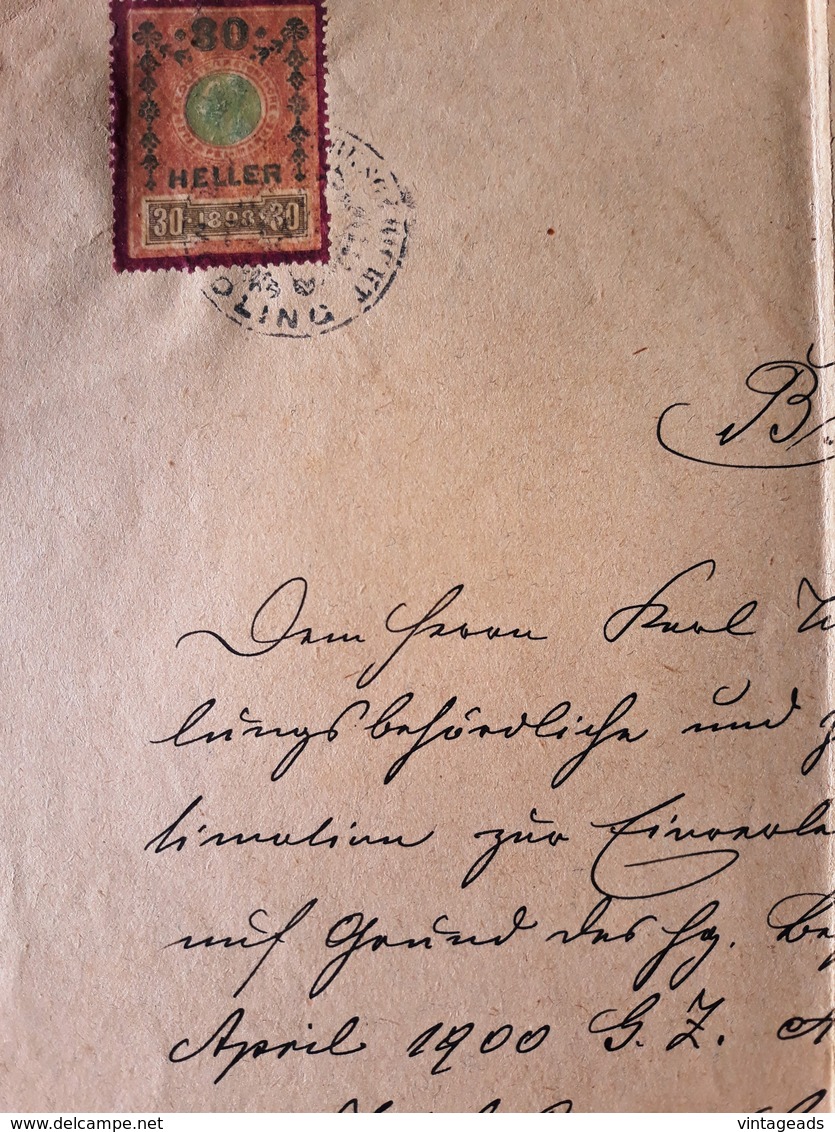 30
HELLER
30 · 1898 · 30
DLING
B
Dem Herrn Karl
lungsbehördliche und
timation zur Einverle
auf Grund des hg. Be
April 1900 G. Z. A
www.delcampe.net
vintageads